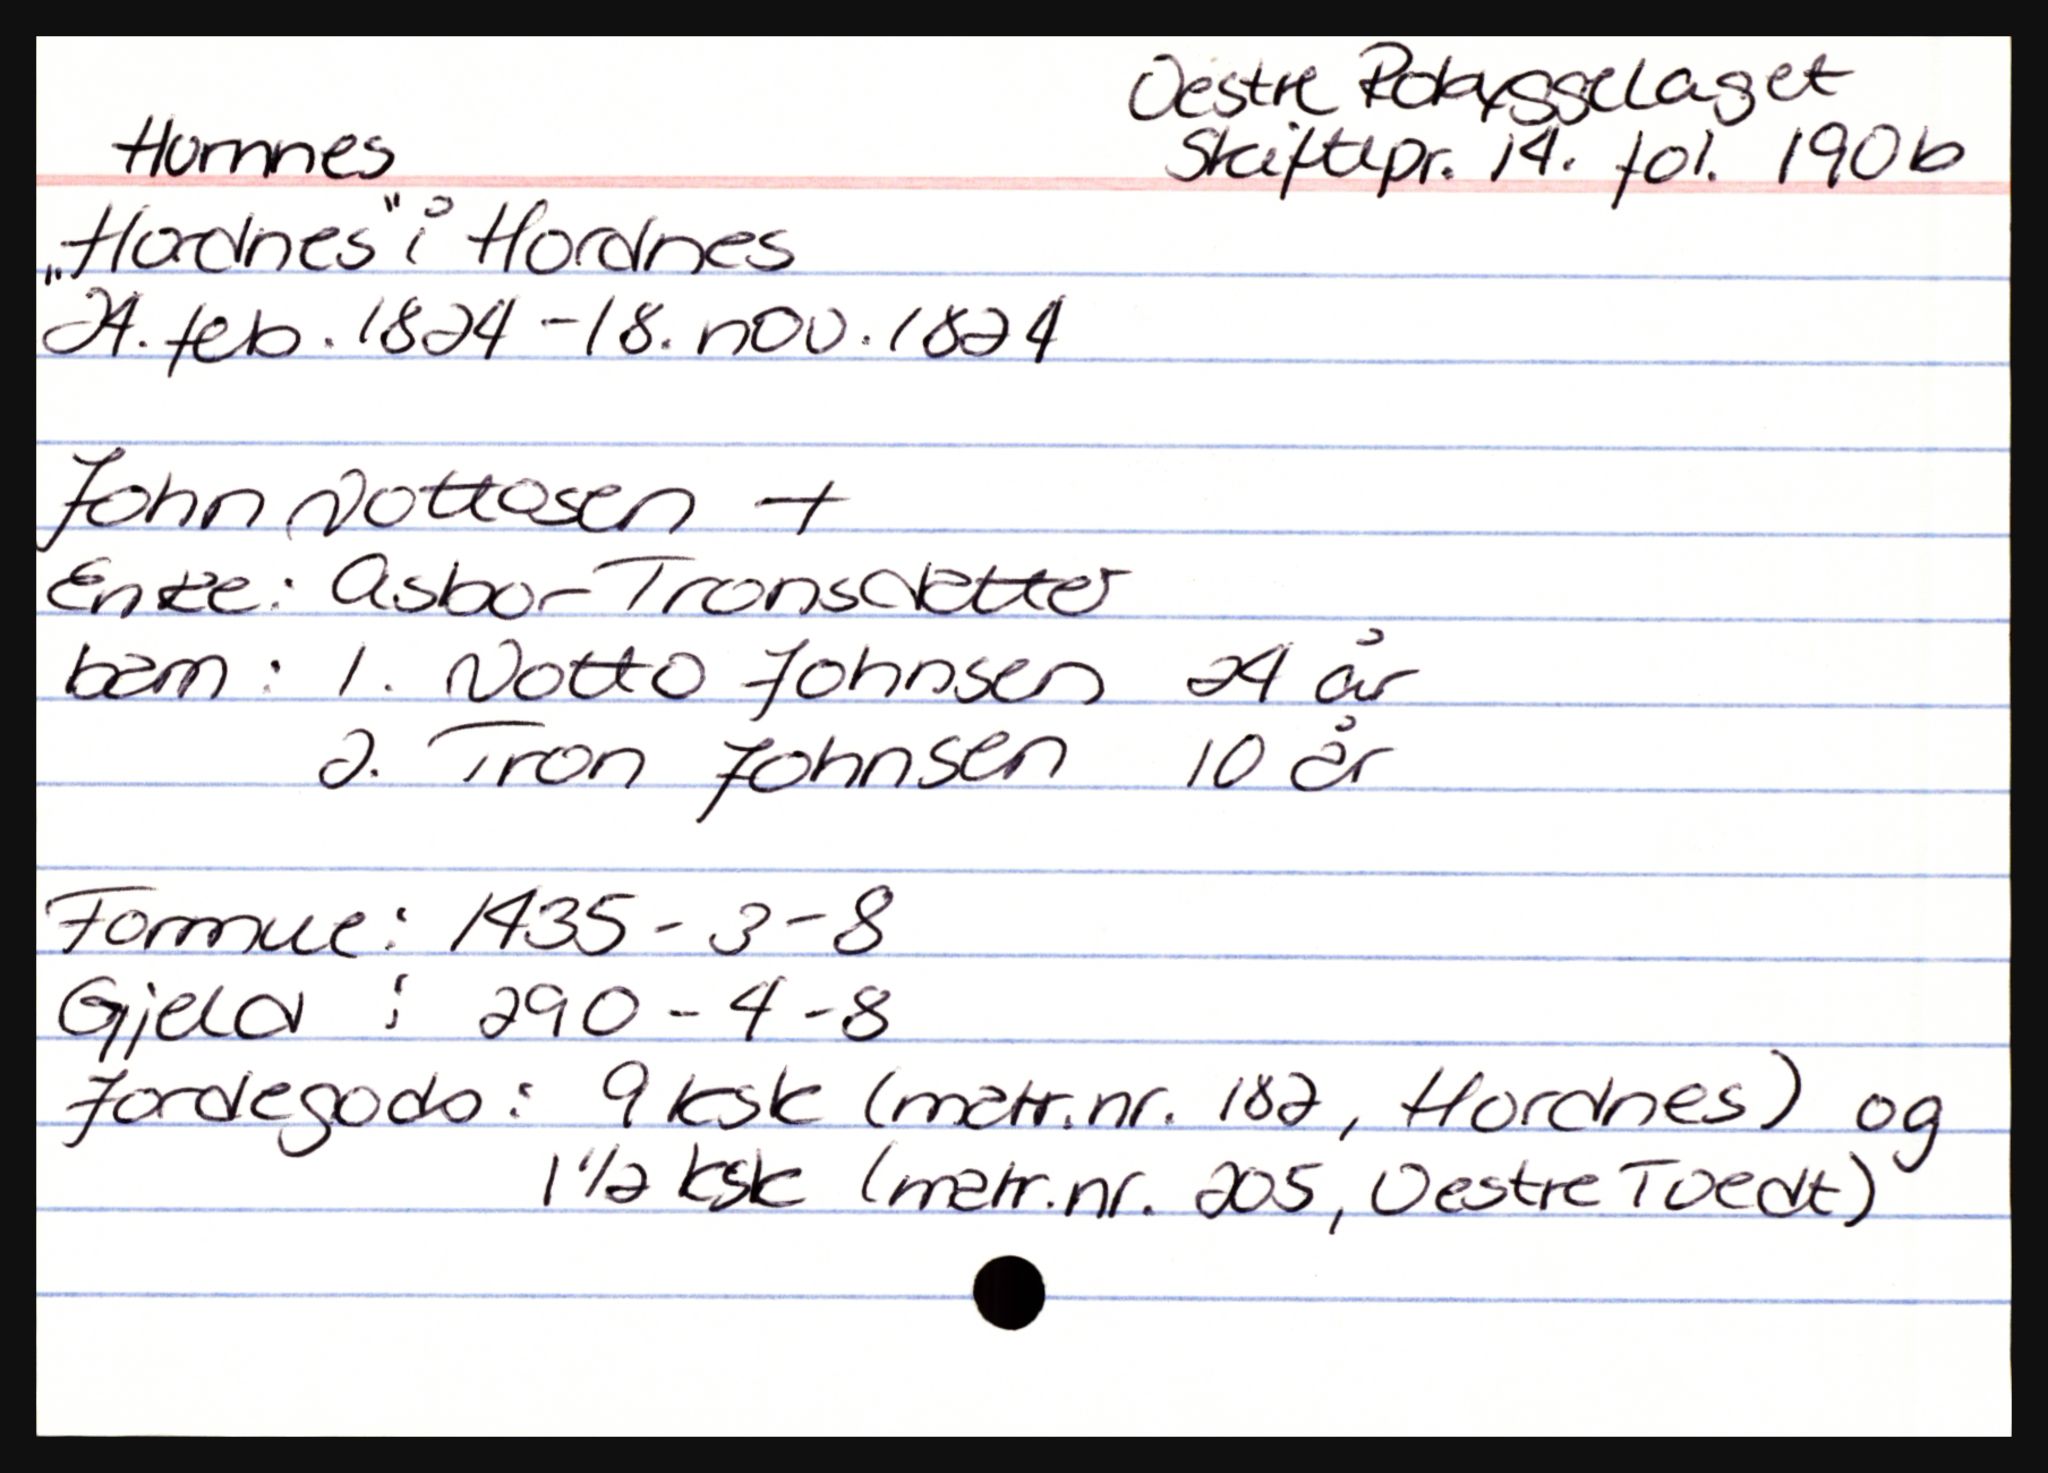 Oestre Robyggelaget
Homnes Skiftepr. 14. fol. 190b
"Hordnes" i Hordnes
24. feb. 1824 - 18. nov. 1824
John Nottosen +
Enke: Asbor Tronsdatter
barn: 1. Notto Johnsen 24 år
2. Tron Johnsen 10 år
Formue: 1435 - 3 - 8
Gjeld : 290 - 4 - 8
Jordegods: 9 ksk (matr.nr. 182, Hordnes) og
1 1/2 ksk (matr.nr. 205, Oestre Tvedt)